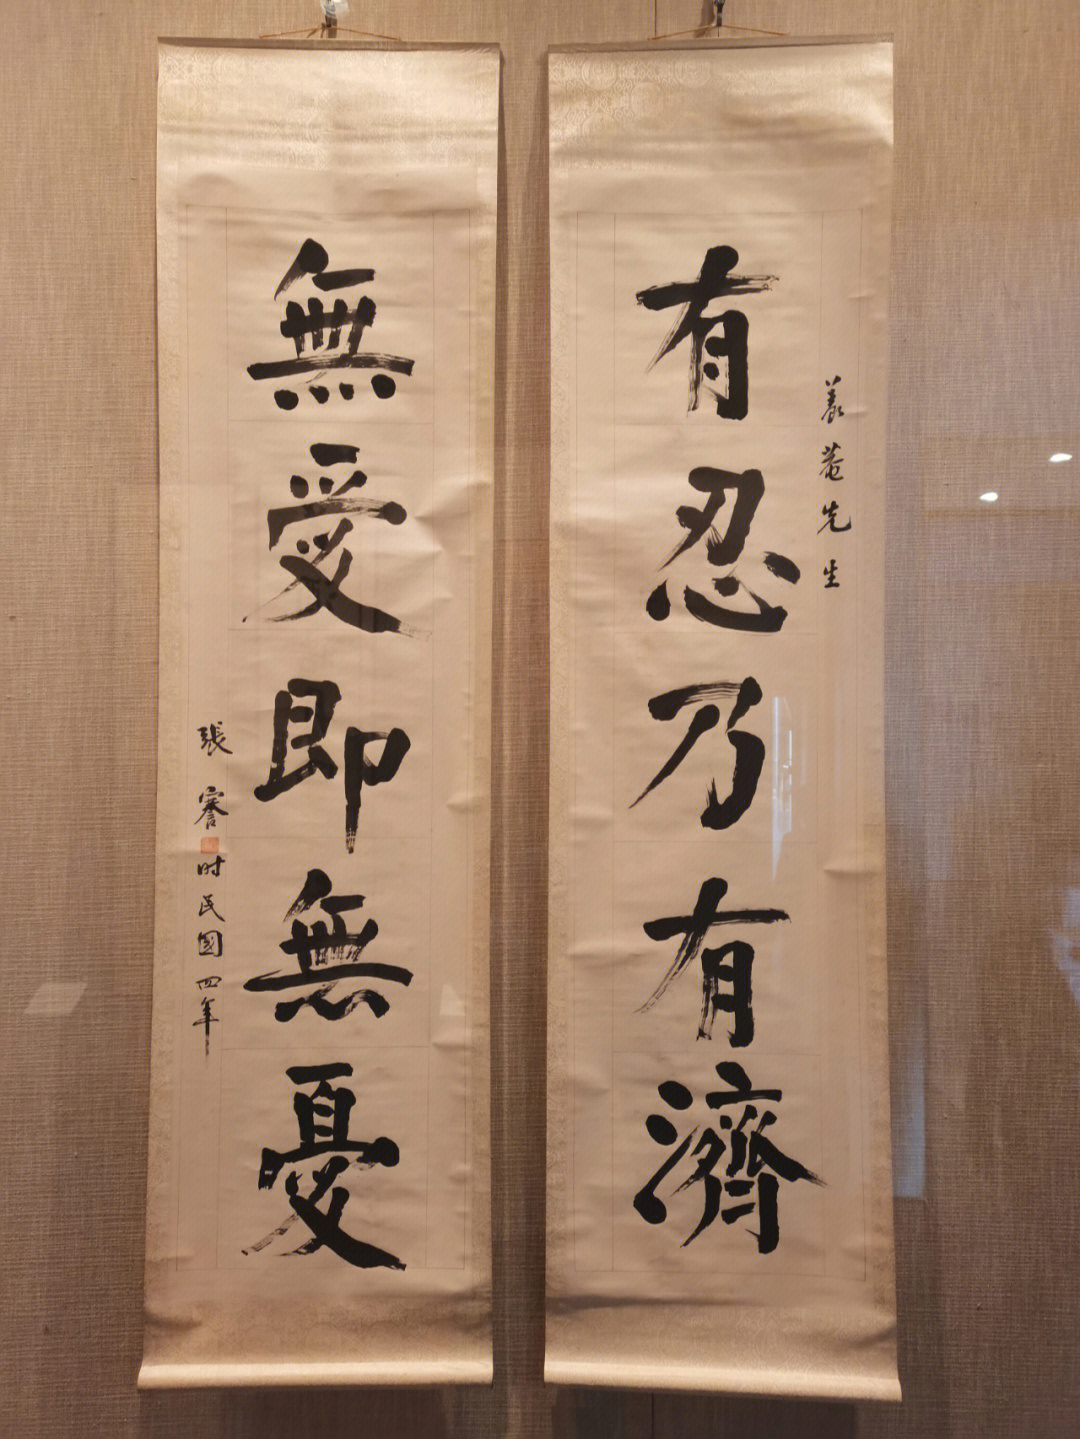 菴先生
有忍乃有濟
無愛即無憂
張謇
时民國四年